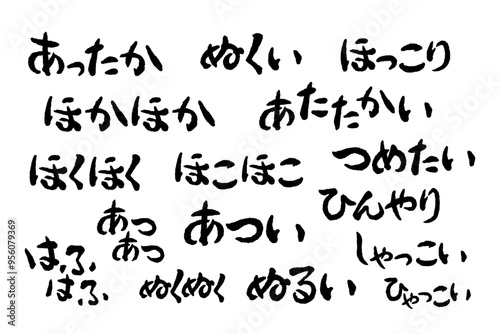 あったか ぬくい ほっこり
ほかほか あたたかい
ほくほく ほこほこ つめたい
ひんやり
あつ
あつ
あつい
はふ
はふ
ぬくぬく ぬるい
しゃっこい
ひゃっこい
Adobe Stock | #956079369